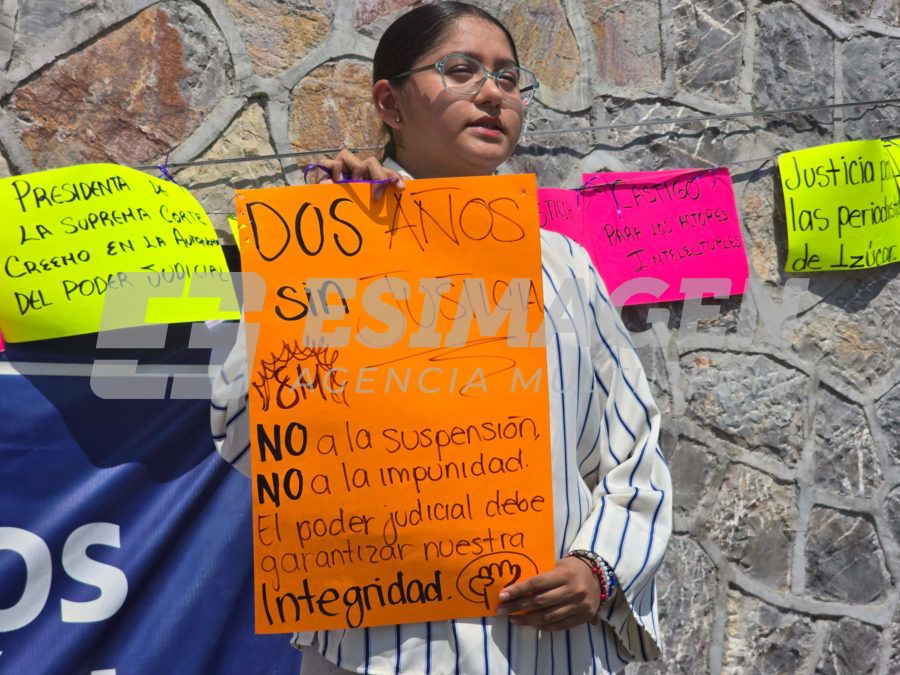 PRESIDENTA DE
LA SUPREMA CORTE
CREEMO EN LA AUTONOMIA
DEL PODER JUDICIAL
DOS AÑOS
sin JUSTICIA
NO a la suspensión,
NO a la impunidad.
El poder judicial debe
garantizar nuestra
Integridad.
CASTIGO
PARA LOS ACTORES
INTELECTUALES
Justicia
las periodis
de Izúcar.
ESIMAGEN
AGENCIA MU
OS